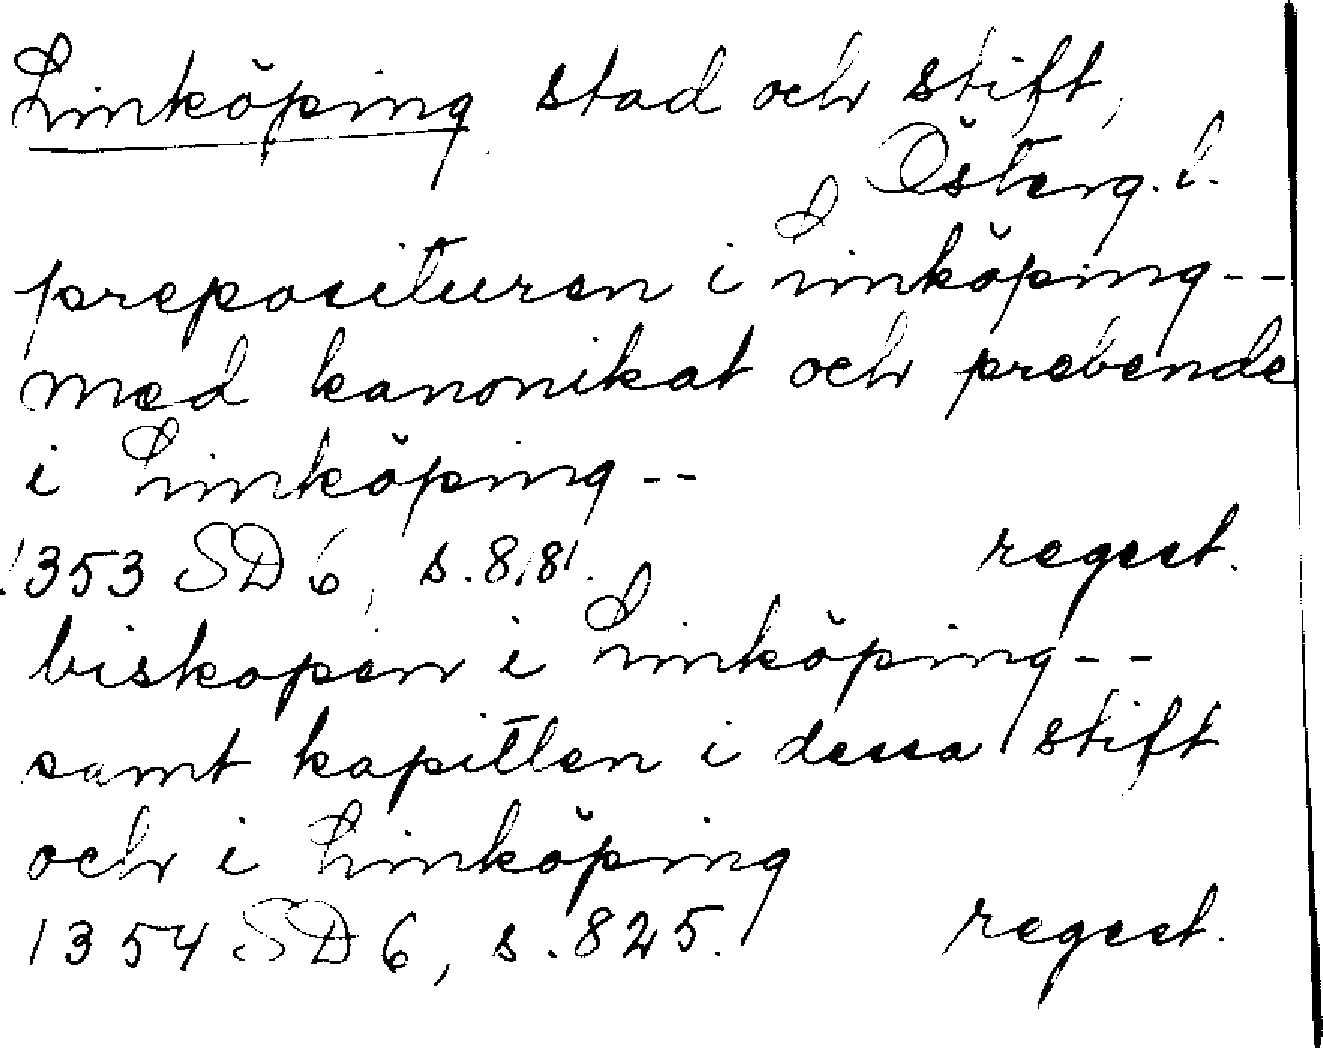 Linköping stad och stift,
Österg. l.
preposituren i Linköping--
med kanonikat och prebende
i Linköping--
1353 SD 6, s. 81. regest.
biskopen i Linköping--
samt kapitlen i dessa stift
och i Linköping
1354 SD 6, s. 825. regest.